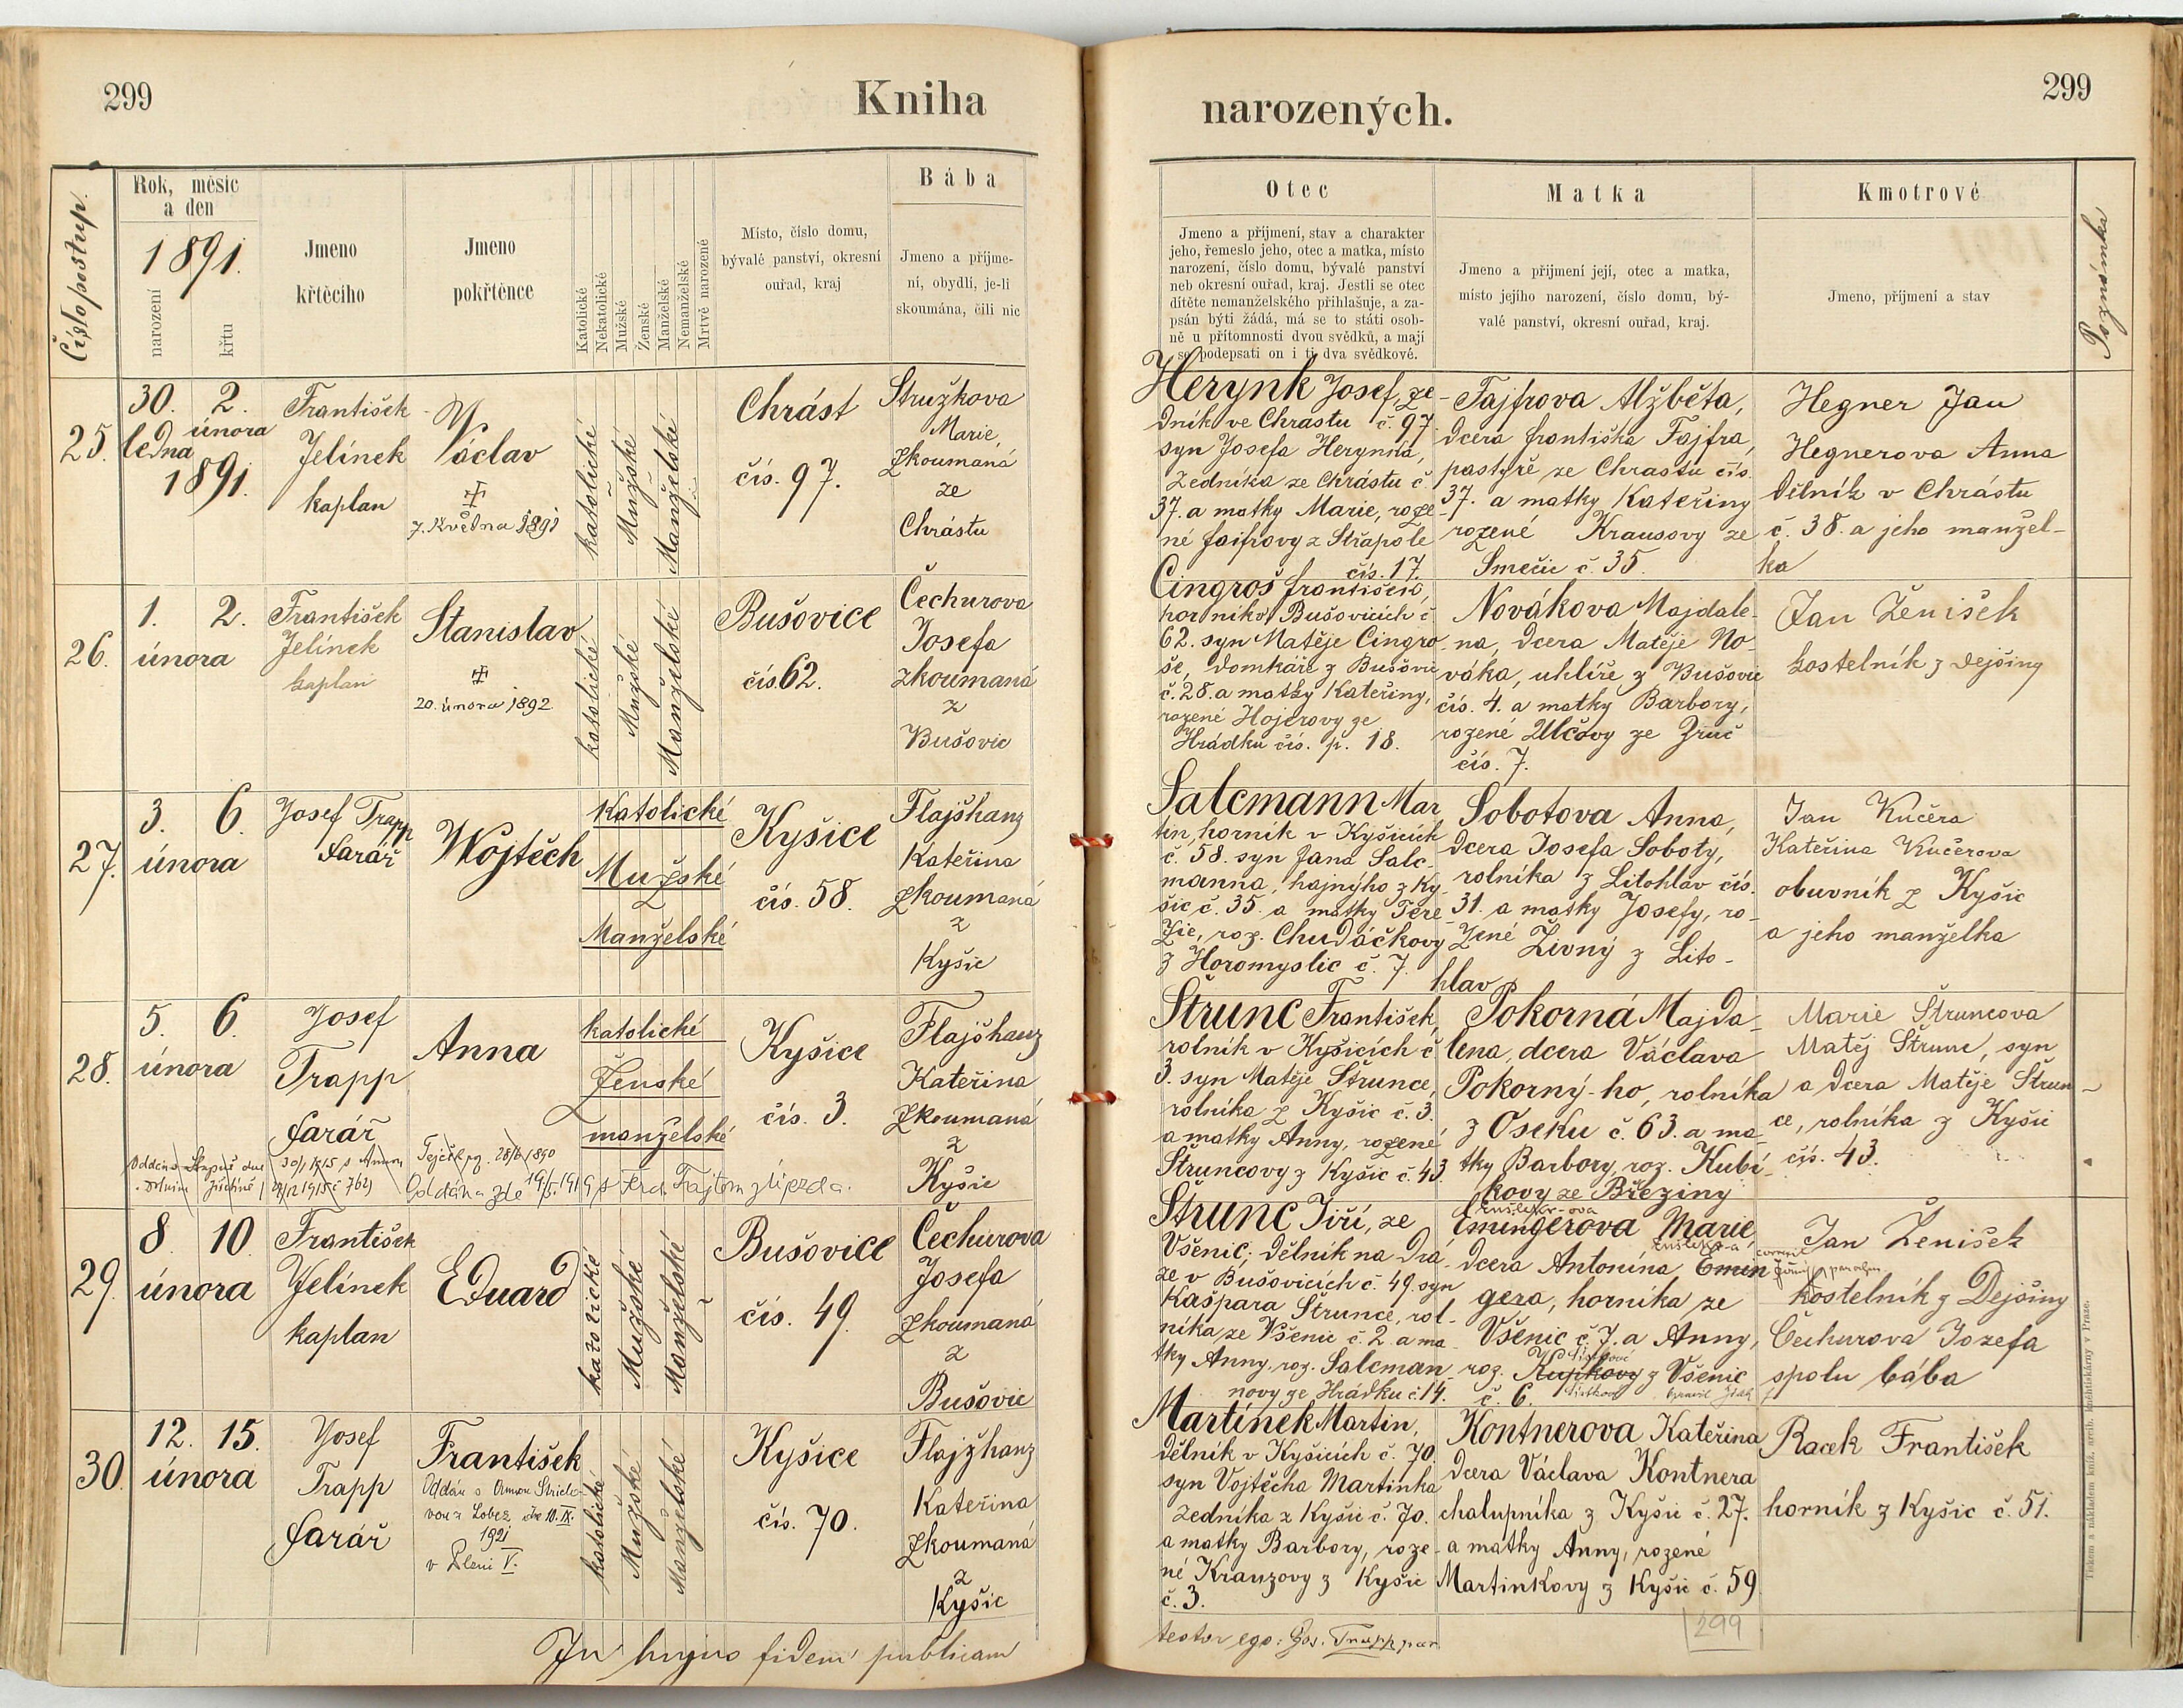 299
Kniha
narozených.
299
Číslo postup.
Rok, měsíc
a den
1891.
narození
křtu
Jmeno
křtěcího
Jmeno
pokřtěnce
Katolické
Nekatolické
Mužské
Ženské
Manželské
Nemanželské
Mrtvě narozené
Místo, číslo domu,
bývalé panství, okresní
ouřad, kraj
Bába
Jmeno a příjme-
ní, obydlí, je-li
skoumána, čili nic
Otec
Jmeno a příjmení, stav a charakter
jeho, řemeslo jeho, otec a matka, místo
narození, číslo domu, bývalé panství
neb okresní ouřad, kraj. Jestli se otec
dítěte nemanželského přihlašuje, a za-
psán býti žádá, má se to státi osob-
ně u přítomnosti dvou svědků, a mají
se podepsati on i ti dva svědkové.
Matka
Jmeno a příjmení její, otec a matka,
místo jejího narození, číslo domu, bý-
valé panství, okresní ouřad, kraj.
Kmotrové
Jmeno, příjmení a stav
Poznámka
25.
30.
ledna
2.
února
1891.
František
Jelínek
kaplan
Václav
7. května 1891
katolické
Mužské
Manželské
Chrást
čís. 97.
Stružkova
Marie,
zkoumaná
ze
Chrástu
Herynk Josef, ze-
dník ve Chrastu č. 97.
syn Josefa Herynka,
zedníka ze Chrástu č.
37. a matky Marie, roze
né Faifrovy z Střapole
čís. 17.
Fajfrova Alžběta,
dcera františka Fajfra,
pastýře ze Chrastu čís.
37. a matky Kateřiny
rozené Krausovy ze
Smečic č. 35.
Hegner Jan
Hegnerova Anna
dělník v Chrástu
č. 38. a jeho manžel-
ka
26.
1.
února
2.
František
Jelínek
kaplan
Stanislav
20. února 1892.
katolické
Mužské
Manželské
Bušovice
čís. 62.
Čechurova
Josefa
zkoumaná
z
Bušovic
Cingroš františek,
horník v Bušovicích č.
62. syn Matěje Cingro-
še, domkáře z Bušovic
č. 28. a matky Kateřiny,
rozené Hojerovy ze
Hrádku čís. p. 18.
Novákova Majdale-
na, dcera Matěje No-
váka, uhlíře z Bušovic
čís. 4. a matky Barbory,
rozené Ulčovy ze Zruč
čís. 7.
Jan Ženišek
kostelník z Dejšiny
27.
3.
února
6.
Josef Trapp
farář
Wojtěch
Katolické
Mužské
Manželské
Kyšice
čís. 58.
Flajšhanz
Kateřina
zkoumaná
z
Kyšic
Salcmann Mar
tin, horník v Kyšicích
č. 58. syn Jana Salc-
manna, hajnýho z Ky-
šic č. 35. a matky Tere
zie, roz. Chudáčkovy
z Horomyslic č. 7.
Sobotova Anna,
dcera Josefa Soboty,
rolníka z Litohlav čís.
31. a matky Josefy, ro-
zené Živný z Lito-
hlav
Jan Kučera
Kateřina Kučerova
obuvník z Kyšic
a jeho manželka
28.
5.
února
6.
Josef
Trapp
farář
Anna
katolické
Ženské
manželské
Kyšice
čís. 3.
Flajšhanz
Kateřina
zkoumaná
z
Kyšic
Oddána zde 19/5. 1919 s Ferd. Frajtem
Štrunc František,
rolník v Kyšicích č.
3. syn Matěje Štrunce,
rolníka z Kyšic č. 3.
a matky Anny, rozené
Štruncovy z Kyšic č. 43.
Pokorná Majda-
lena, dcera Václava
Pokorný-ho, rolníka
z Oseku č. 63. a ma-
tky Barbory, roz. Kubí-
kovy ze Březiny
Marie Štruncova
Matěj Štrunc, syn
a dcera Matěje Štrun-
ce, rolníka z Kyšic
čís. 43.
29.
8.
února
10.
František
Jelínek
kaplan
Eduard
katolické
Mužské
Manželské
Bušovice
čís. 49.
Čechurova
Josefa
zkoumaná
z
Bušovic
Štrunc Jiří, ze
Všenic, dělník na drá-
ze v Bušovicích č. 49. syn
Kašpara Štrunce, rol-
níka ze Všenic č. 2. a ma-
tky Anny, roz. Salcman-
novy ze Hrádku č. 14.
Emingerova Marie,
dcera Antonína Emin
gera, horníka ze
Všenic č. 7. a Anny,
roz. Kupkovy z Všenic
č. 6.
Jan Ženišek
kostelník z Dejšiny
Čechurova Jozefa
spolu bába
30.
12.
února
15.
Josef
Trapp
farář
František
Oddán s Annou
vou z Lobez dne 10. IX.
1921
v Plzni V.
katolické
Mužské
Manželské
Kyšice
čís. 70.
Flajžhanz
Kateřina
zkoumaná
z
Kyšic
Martínek Martin,
dělník v Kyšicích č. 70.
syn Vojtěcha Martinka
zedníka z Kyšic č. 70.
a matky Barbory, roze-
né Kranzovy z Kyšic
č. 3.
Kontnerova Kateřina
dcera Václava Kontnera
chalupníka z Kyšic č. 27.
a matky Anny, rozené
Martinkovy z Kyšic č. 59.
Racek František
horník z Kyšic č. 51.
In hujus fidem publicam
testor ego: Jos. Trapp par.
299
Tiskem a nákladem kníž. arcib. knihtiskárny v Praze.